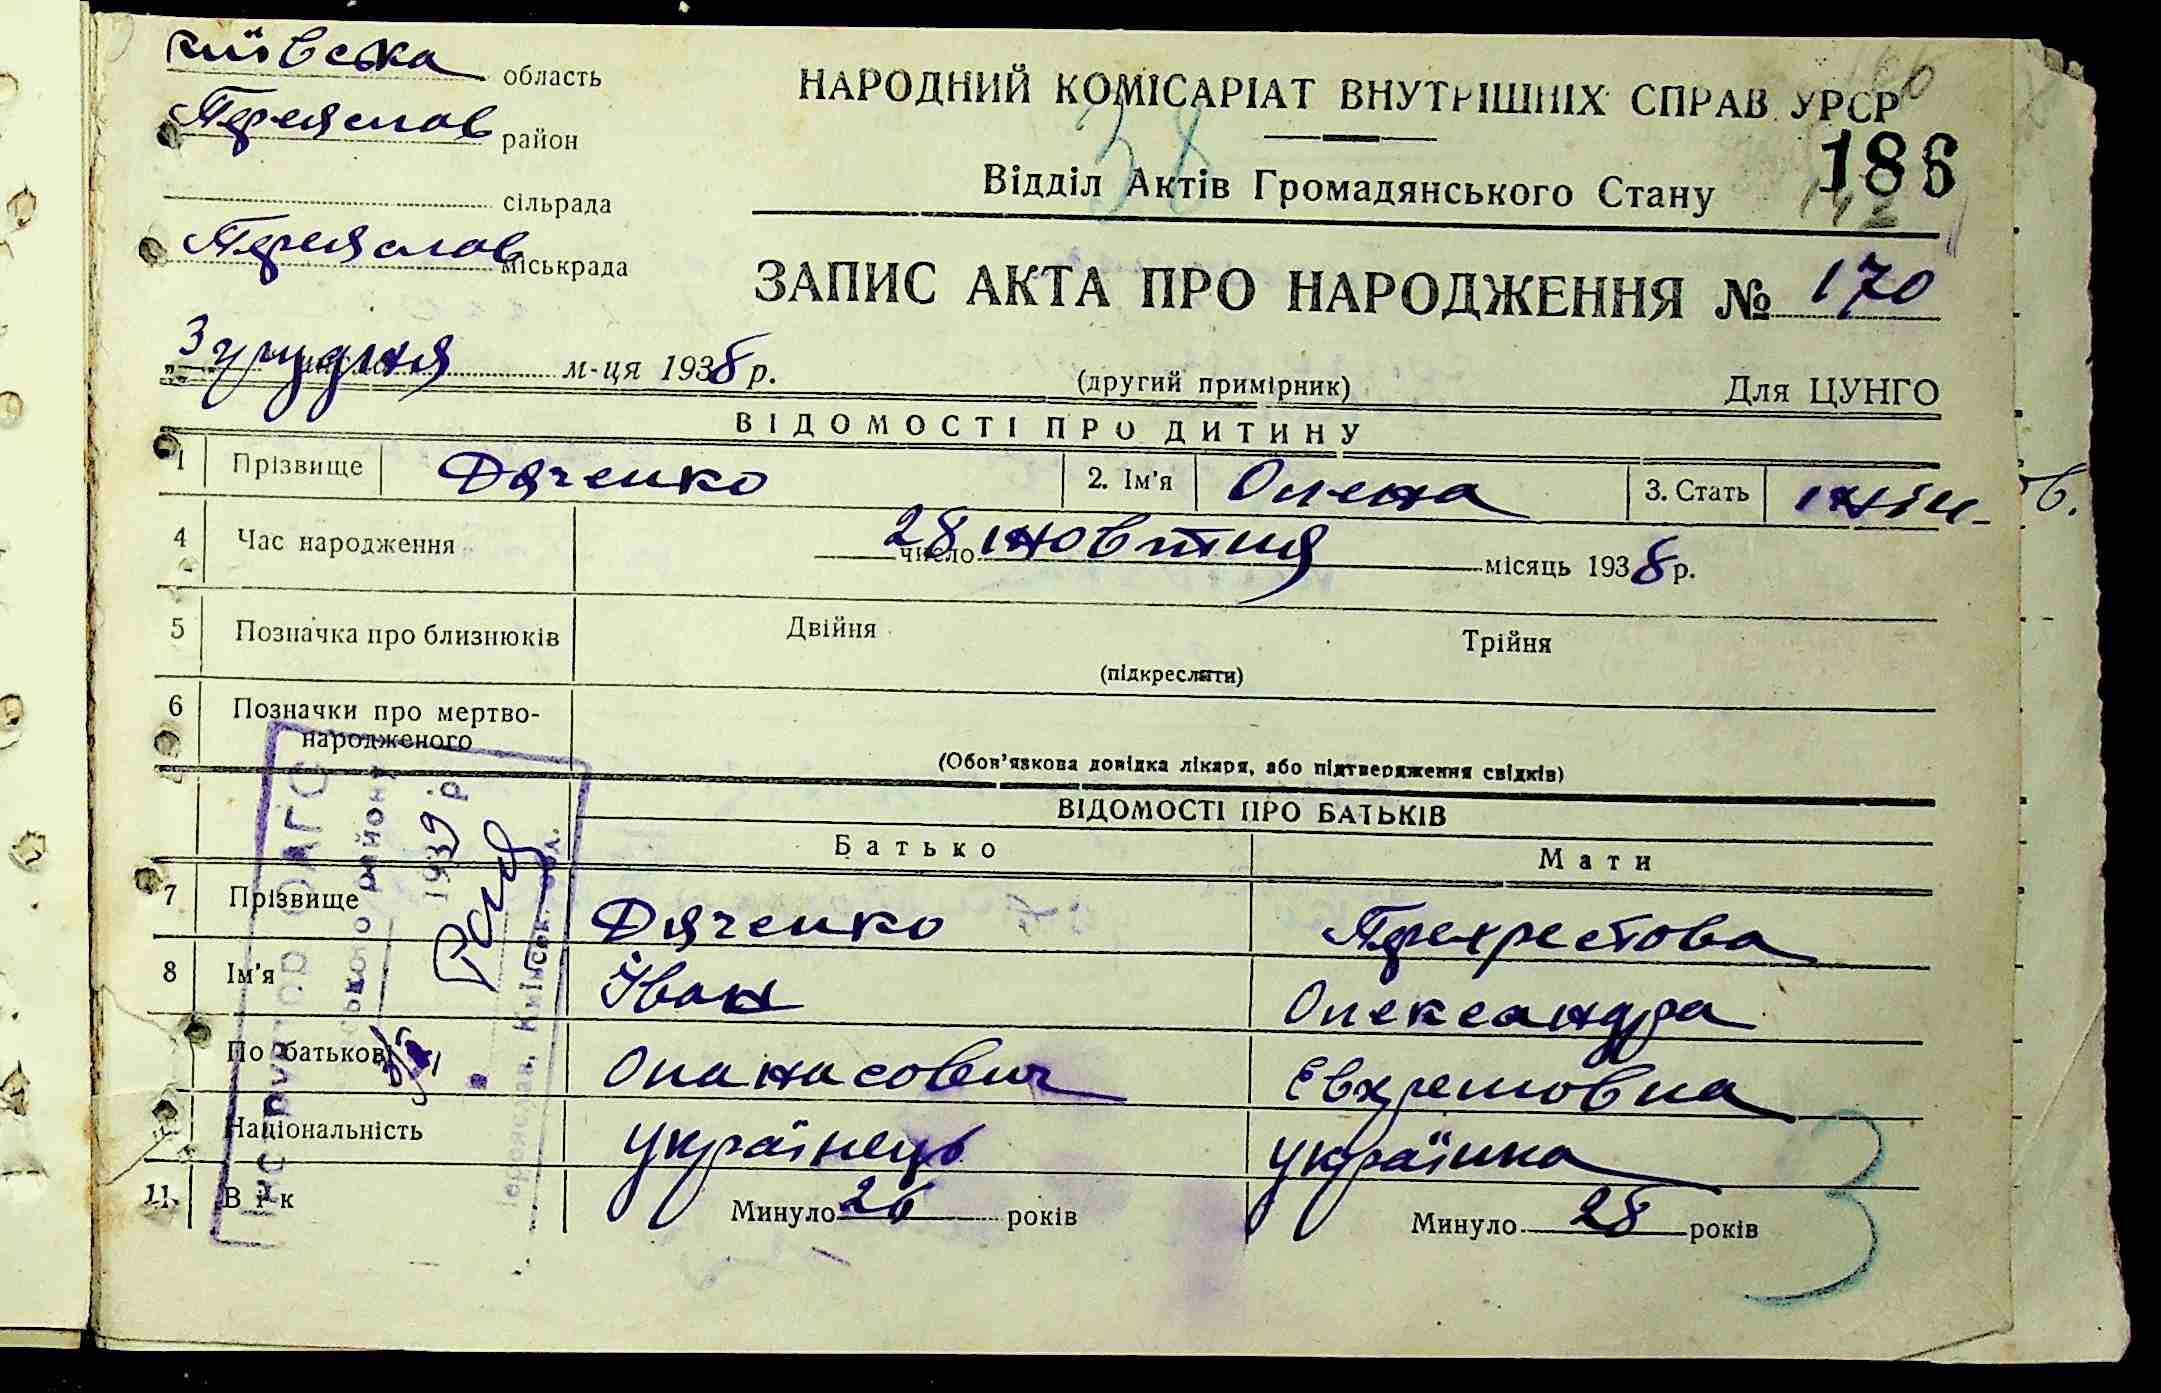 Київська область
Переяслав район
сільрада
Переяслав міськрада
НАРОДНИЙ КОМІСАРІАТ ВНУТРІШНІХ СПРАВ УРСР
38
Відділ Актів Громадянського Стану
186
ЗАПИС АКТА ПРО НАРОДЖЕННЯ № 170
3 грудня м-ця 1938 р.
(другий примірник)
Для ЦУНГО
ВІДОМОСТІ ПРО ДИТИНУ
1 Прізвище Дяченко 2. Ім'я Олена 3. Стать жін.
4 Час народження 28 число жовтня місяць 1938 р.
5 Позначка про близнюків Двійня Трійня
(підкреслити)
6 Позначки про мертво-
народженого
(Обов'язкова довідка лікаря, або підтвердження свідків)
ВІДОМОСТІ ПРО БАТЬКІВ
Батько Мати
7 Прізвище Дяченко Перехрестова
8 Ім'я Іван Олександра
По батькові Опанасович Евхремовна
Національність українець українка
11. Вік Минуло 26 років Минуло 28 років
3
1939 р